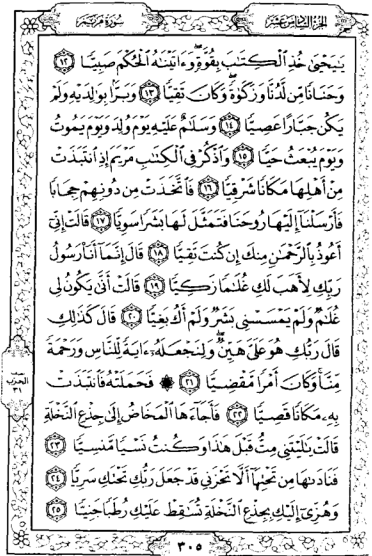 سُورَةُ مَرْيَمَ
الجُزْءُ السَّادِسَ عَشَرَ
يَٰيَحْيَىٰ خُذِ ٱلْكِتَٰبَ بِقُوَّةٍۖ وَءَاتَيْنَٰهُ ٱلْحُكْمَ صَبِيًّا ١٢
وَحَنَانًا مِّن لَّدُنَّا وَزَكَوٰةًۖ وَكَانَ تَقِيًّا ١٣ وَبَرًّۢا بِوَٰلِدَيْهِ وَلَمْ
يَكُن جَبَّارًا عَصِيًّا ١٤ وَسَلَٰمٌ عَلَيْهِ يَوْمَ وُلِدَ وَيَوْمَ يَمُوتُ
وَيَوْمَ يُبْعَثُ حَيًّا ١٥ وَٱذْكُرْ فِى ٱلْكِتَٰبِ مَرْيَمَ إِذِ ٱنتَبَذَتْ
مِنْ أَهْلِهَا مَكَانًا شَرْقِيًّا ١٦ فَٱتَّخَذَتْ مِن دُونِهِمْ حِجَابًا
فَأَرْسَلْنَآ إِلَيْهَا رُوحَنَا فَتَمَثَّلَ لَهَا بَشَرًا سَوِيًّا ١٧ قَالَتْ إِنِّىٓ
أَعُوذُ بِٱلرَّحْمَٰنِ مِنكَ إِن كُنتَ تَقِيًّا ١٨ قَالَ إِنَّمَآ أَنَا۠ رَسُولُ
رَبِّكِ لِأَهَبَ لَكِ غُلَٰمًا زَكِيًّا ١٩ قَالَتْ أَنَّىٰ يَكُونُ لِى
غُلَٰمٌ وَلَمْ يَمْسَسْنِى بَشَرٌ وَلَمْ أَكُ بَغِيًّا ٢٠ قَالَ كَذَٰلِكِ
قَالَ رَبُّكِ هُوَ عَلَىَّ هَيِّنٌۖ وَلِنَجْعَلَهُۥٓ ءَايَةً لِّلنَّاسِ وَرَحْمَةً
مِّنَّاۚ وَكَانَ أَمْرًا مَّقْضِيًّا ٢١ ۞ فَحَمَلَتْهُ فَٱنتَبَذَتْ
بِهِۦ مَكَانًا قَصِيًّا ٢٢ فَأَجَآءَهَا ٱلْمَخَاضُ إِلَىٰ جِذْعِ ٱلنَّخْلَةِ
قَالَتْ يَٰلَيْتَنِى مِتُّ قَبْلَ هَٰذَا وَكُنتُ نَسْيًا مَّنسِيًّا ٢٣
فَنَادَىٰهَا مِن تَحْتِهَآ أَلَّا تَحْزَنِى قَدْ جَعَلَ رَبُّكِ تَحْتَكِ سَرِيًّا ٢٤
وَهُزِّىٓ إِلَيْكِ بِجِذْعِ ٱلنَّخْلَةِ تُسَٰقِطْ عَلَيْكِ رُطَبًا جَنِيًّا ٢٥
الحزب
٣١
٣٠٥